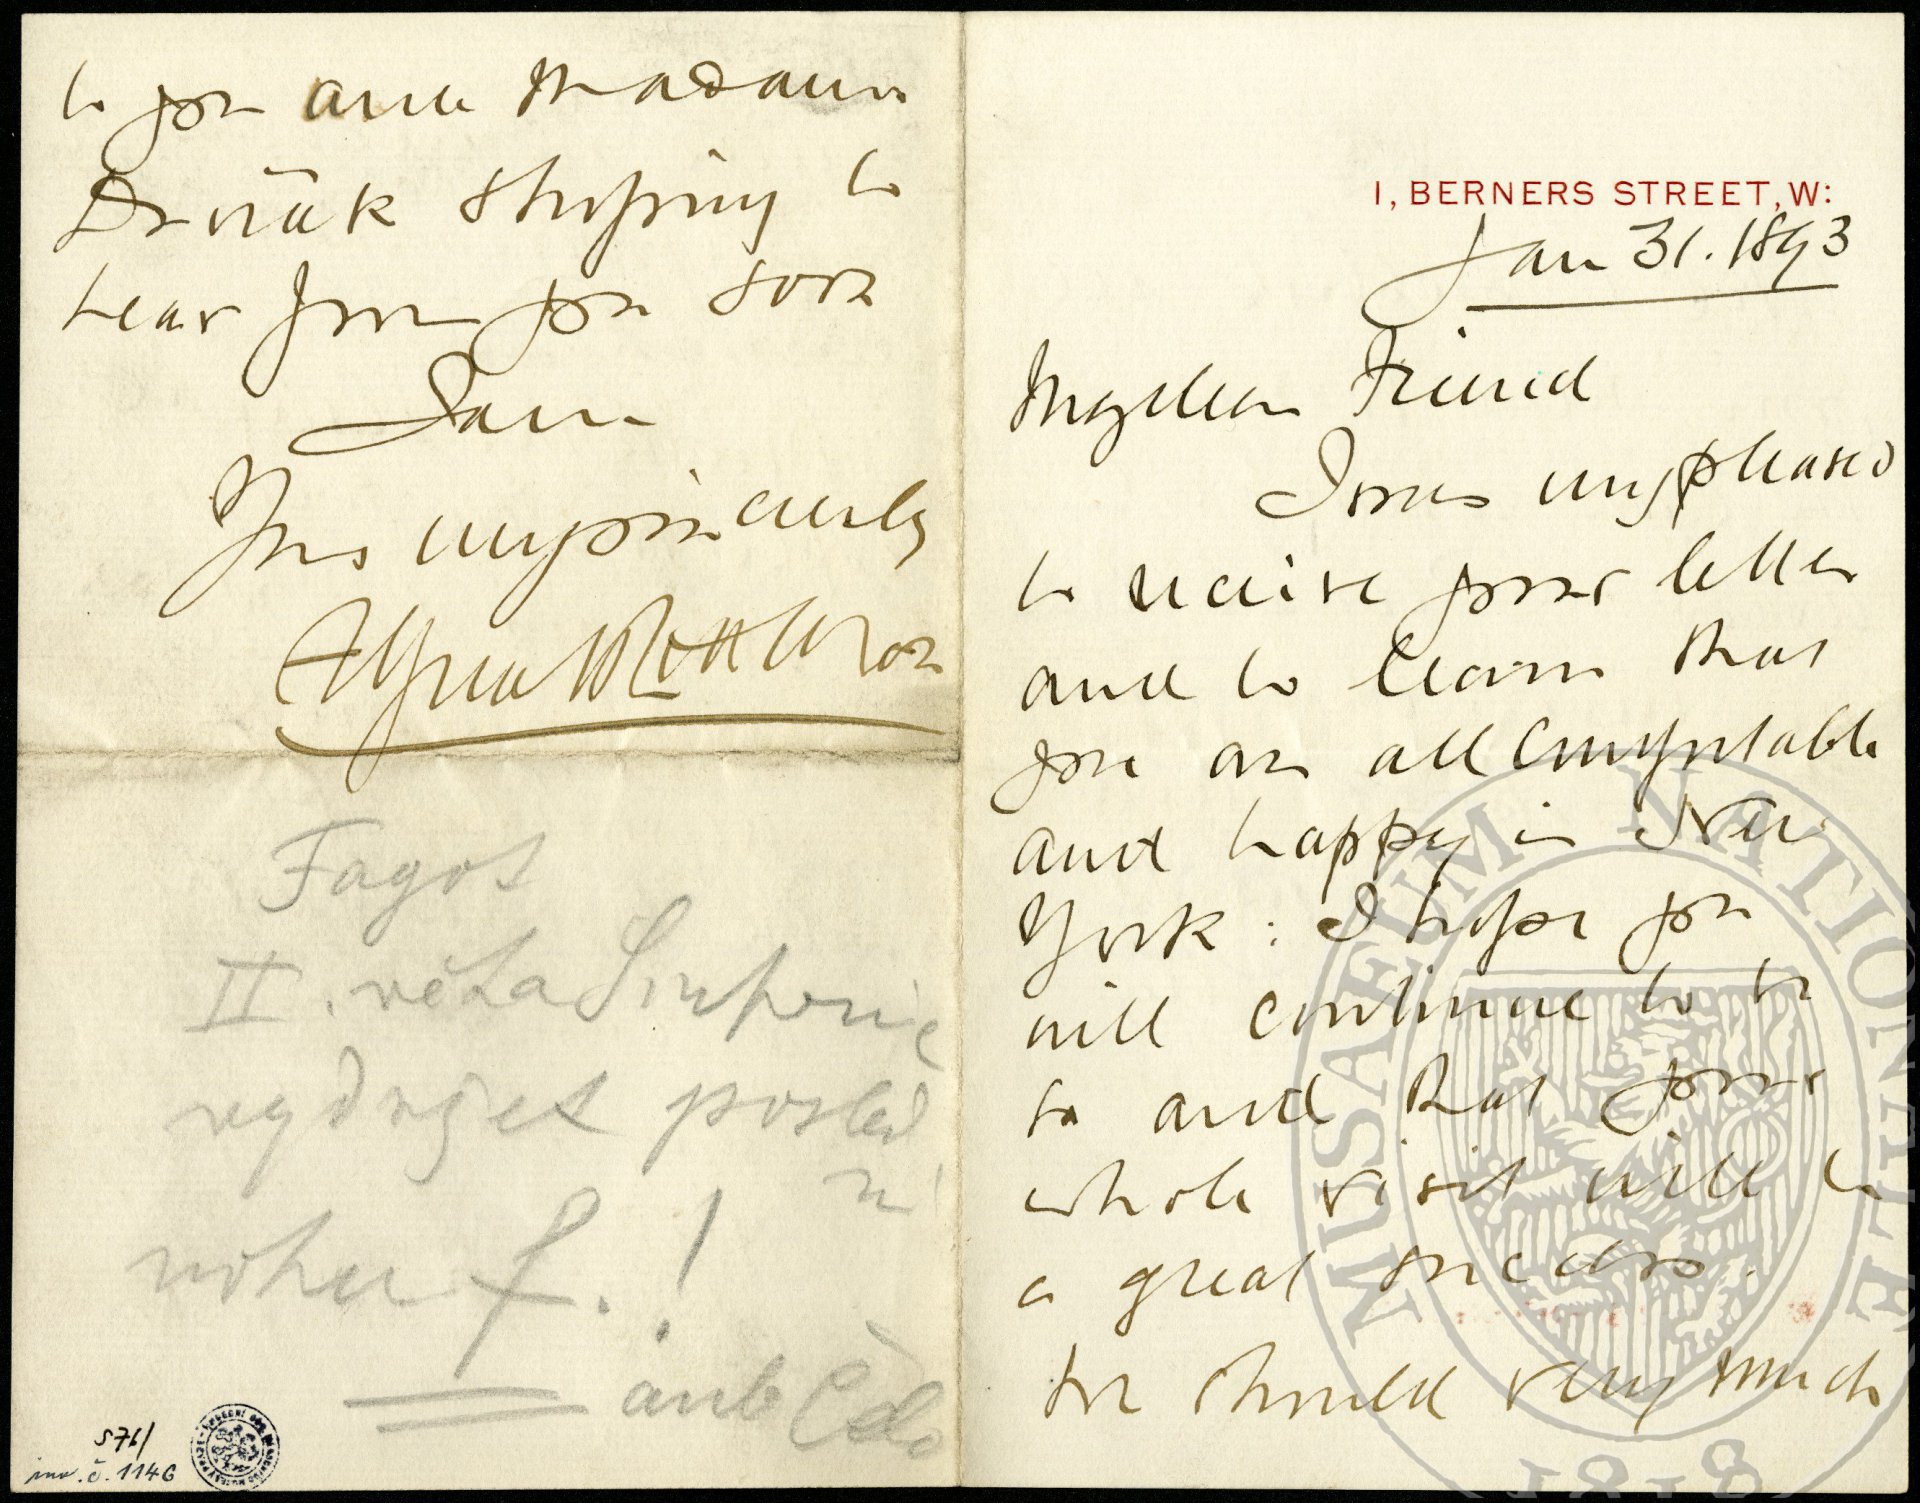 1, BERNERS STREET, W:
Jan 31. 1893
My dear Friend
I was very pleased
to receive your letter
and to learn that
you are all comfortable
and happy in New
York: I hope you
will continue to be
so and that your
whole visit will be
a great success.
We should very much
to you and Madame
Dvořák & hoping to
hear from you soon
I am
Yours very sincerely
Alfred H Littleton
Fagot
II. věta Sinfonie
vydržet posled
ní
notu f.!
MUSAEUM NATIONALE
1818
576/
inv. č. 1146